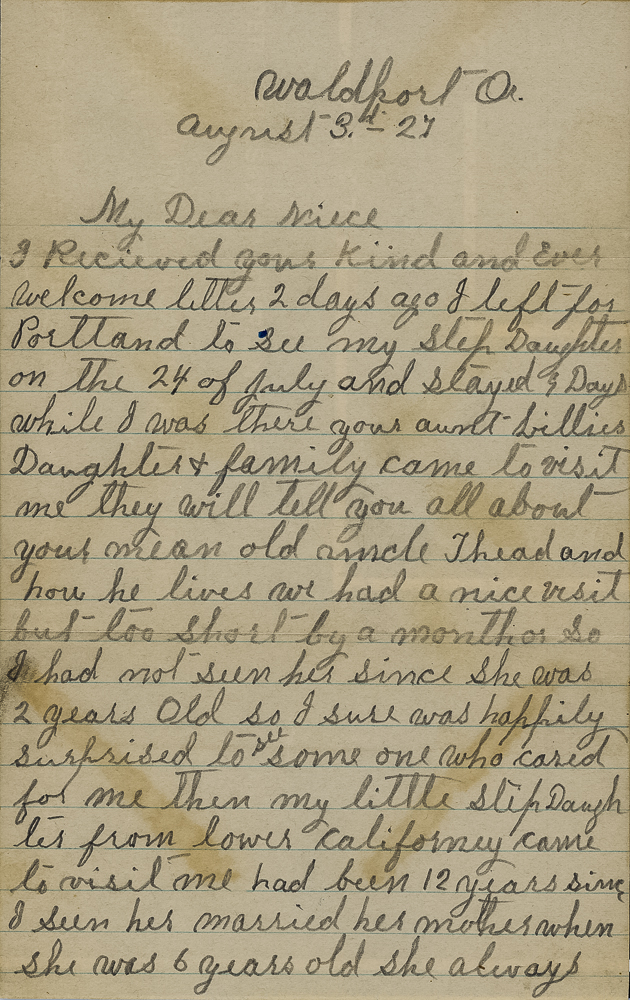 Waldport Or.
August 3.d - 27
My Dear Niece
I Recieved your Kind and Ever
welcome letter 2 days ago I left for
Porttand to see my Step Daughter
on the 24 of July and stayed 9 Days
while I was there your aunt Lillies
Daughter & family came to visit
me they will tell you all about
your mean old uncle Thead and
how he lives we had a nice visit
but too short by a month or so
I had not seen her since she was
2 years Old so I sure was happily
surprised to see some one who cared
for me then my little Step Daugh
ter from lower Californey came
to visit me had been 12 years since
I seen her married her mother when
she was 6 years old she always